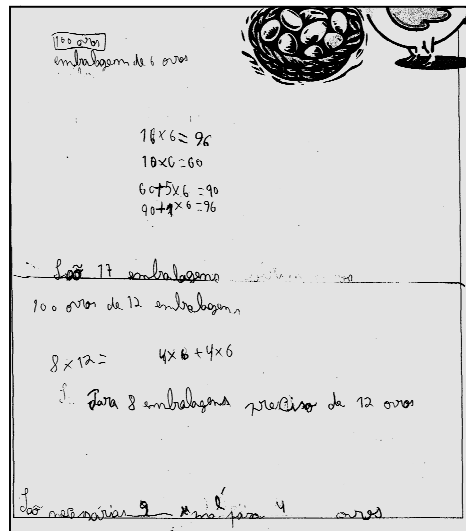 100 ovos
embalagem de 6 ovos
16×6=96
10×6=60
60+5×6=90
90+1×6=96
São 17 embalagens
100 ovos de 12 embalagens
8×12= 4×6+4×6
Para 8 embalagens preciso de 12 ovos
São necessárias 9 para 4 ovos